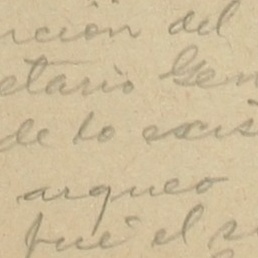 nción del
etario Gen
de lo exis
arqueo
fué el s